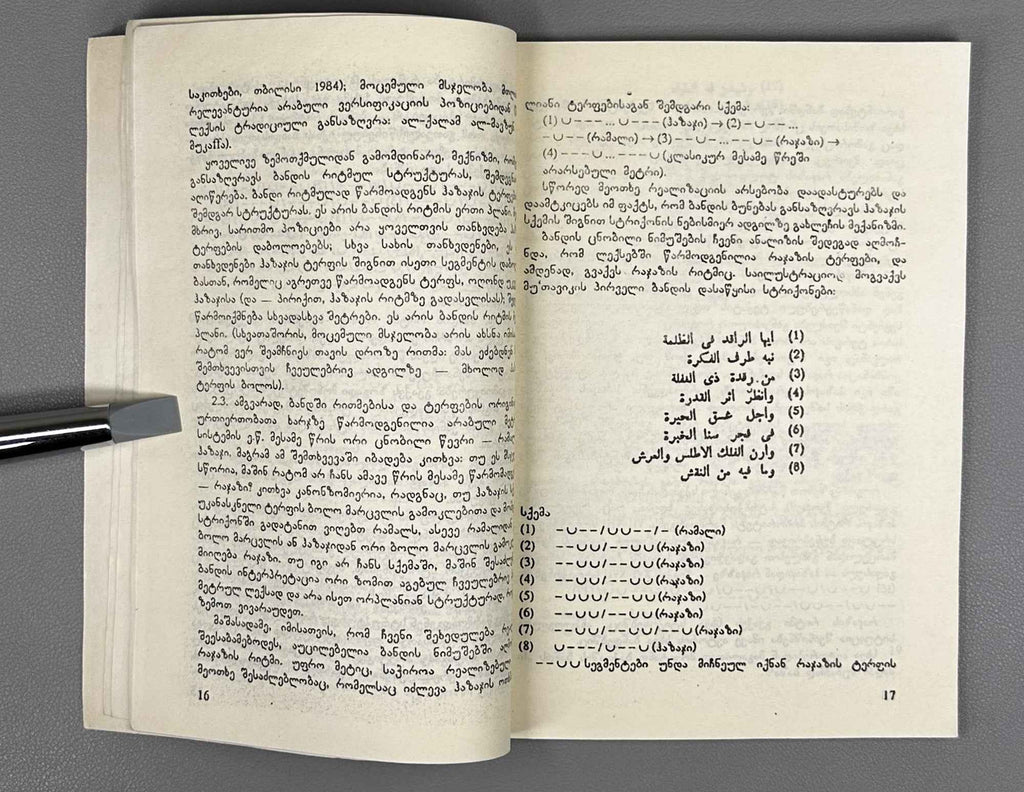 საკითხები, თბილისი 1984); მოცემული მსჯელობა
რელევანტურია არაბული ვერსიფიკაციის პოზიციებიდან
ლექსის ტრადიციული განსაზღვრა: ალ-ქალამ ალ-მავზუნ
მუკაffა).
ყოველივე ზემოთქმულიდან გამომდინარე, მექნიზმი,
განსაზღვრავს ბანდის რიტმულ სტრუქტურას,
აღიწერება. ბანდი რიტმულად წარმოადგენს ჰაზაჯის
შემდგარ სტრუქტურას. ეს არის ბანდის რიტმის ერთი პლანი.
მხრივ, სარითმო პოზიციები არ ყოველთვის თანხვდება
ტერფების დაბოლოებებს; სხვა სახის თანხვდენები, ეს
თანხვდენები ჰაზაჯის ტერფის შიგნით ისეთი სეგმენტის
ბასთან, რომელიც აგრეთვე წარმოადგენს ტერფს, ოღონდ
ჰაზაჯისა (და — პირიქით, ჰაზაჯის რიტმზე გადასვლისას);
წარმოიქმნება სხვადასხვა მეტრები. ეს არის ბანდის რიტმის
პლანი. (სხვათაშორის, მოცემული მსჯელობა არის ახსნა იმისა
რატომ ვერ შეამჩნიეს თავის დროზე რითმა: მას ეძებდნენ
შემთხვევისთვის ჩვეულებრივ ადგილზე — მხოლოდ
ტერფის ბოლოს).
2.3. ამგვარად, ბანდში რითმებისა და ტერფების
ურთიერთობათა ხარჯზე წარმოდგენილია არაბული
სისტემის ე.წ. მესამე წრის ორი ცნობილი წევრი —
ჰაზაჯი. მაგრამ ამ შემთხვევაში იბადება კითხვა: თუ ეს
სწორია, მაშინ რატომ არ ჩანს ამავე წრის მესამე
— რაჯაზი? კითხვა კანონზომიერია, რადგნაც, თუ ჰაზაჯის
უკანასკნელი ტერფის ბოლო მარცვლის გამოკლებითა და
სტრიქონში გადატანით ვიღებთ რამალს, ასევე რამალიდან
ბოლო მარცვლის ან ჰაზაჯიდან ორი ბოლო მარცვლის
მიიღება რაჯაზი. თუ იგი არ ჩანს სქემაში, მაშინ
ბანდის ინტერპრეტაცია ორი ზომით აგებულ ჩვეულებრივ
მეტრულ ლექსად და არა ისეთ ორპლანიან სტრუქტურად,
ზემოთ ვივარაუდეთ.
მაშასადამე, იმისათვის, რომ ჩვენი შეხედულება
შეესაბამებოდეს, აუცილებელია ბანდის ნიმუშებში
რაჯაზის რიტმი. უფრო მეტიც, საჭიროა
მეოთხე შესაძლებლობაც, რომელსაც იძლევა ჰაზაჯის
16
ლიანი ტერფებისაგან შემდგარი სქემა:
(1) ∪ – – – ... ∪ – – – (ჰაზაჯი) → (2) – ∪ – – ...
– ∪ – – (რამალი) → (3) – – ∪ – ... – – ∪ – (რაჯაზი) →
(4) – – – ∪ ... – – – ∪ (კლასიკურ მესამე წრეში
არარსებული მეტრი).
სწორედ მეოთხე რეალიზაციის არსებობა დაადასტურებს და
დაამტკიცებს იმ ფაქტს, რომ ბანდის ბუნებას განსაზღვრავს ჰაზაჯის
სქემის შიგნით სტრიქონის ნებისმიერ ადგილზე გახლეჩის მექანიზმი.
ბანდის ცნობილი ნიმუშების ჩვენი ანალიზის შედეგად აღმოჩ-
ნდა, რომ ლექსებში წარმოდგენილია რაჯაზის ტერფები, და
ამდენად, გვაქვს რაჯაზის რიტმიც. საილუსტრაციოდ მოგვაქვს
მუ'თავიკის პირველი ბანდის დასაწყისი სტრიქონები:
(1) ايها الراقد فى الظلمة
(2) نبه طرف الفكرة
(3) من رقدة ذى الغفلة
(4) وانظر اثر القدرة
(5) وأجل غسق الحيرة
(6) فى فجر سنا الخبرة
(7) وارن الفلك الاطلس والعرش
(8) وما فيه من النقش
სქემა
(1) – ∪ – – / ∪ ∪ – – / – (რამალი)
(2) – – ∪ ∪ / – – ∪ ∪ (რაჯაზი)
(3) – – ∪ ∪ / – – ∪ ∪ (რაჯაზი)
(4) – – ∪ ∪ / – – ∪ ∪ (რაჯაზი)
(5) – ∪ ∪ ∪ / – – ∪ ∪ (რაჯაზი)
(6) – – ∪ ∪ / – – ∪ ∪ (რაჯაზი)
(7) – – ∪ ∪ / – – ∪ ∪ / – – ∪ (რაჯაზი)
(8) ∪ – – – / ∪ – – ∪ (ჰაზაჯი)
– – ∪ ∪ სეგმენტები უნდა მიჩნეულ იქნან რაჯაზის ტერფის
17